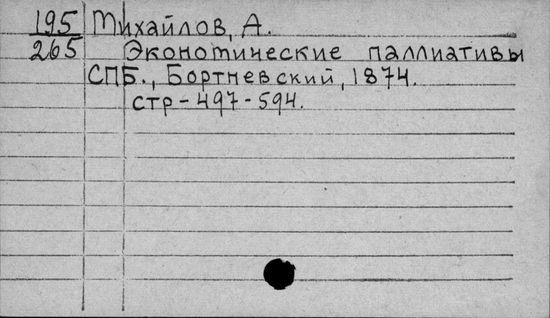 195 Михайлов, А.
265 Экономические паллиативы
СПБ., Бортневский, 1874.
стр-497-594.